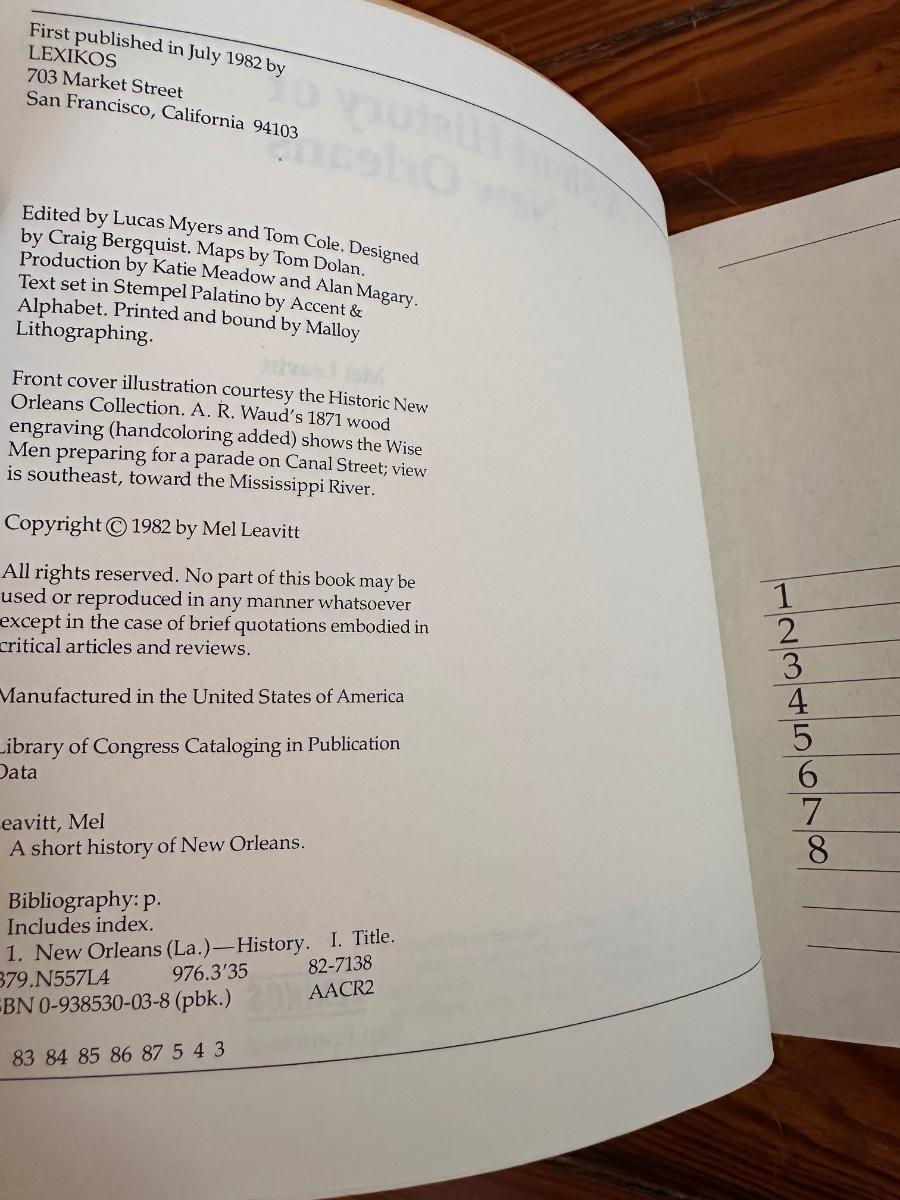 First published in July 1982 by
LEXIKOS
703 Market Street
San Francisco, California 94103
Edited by Lucas Myers and Tom Cole. Designed
by Craig Bergquist. Maps by Tom Dolan.
Production by Katie Meadow and Alan Magary.
Text set in Stempel Palatino by Accent &
Alphabet. Printed and bound by Malloy
Lithographing.
Front cover illustration courtesy the Historic New
Orleans Collection. A. R. Waud's 1871 wood
engraving (handcoloring added) shows the Wise
Men preparing for a parade on Canal Street; view
is southeast, toward the Mississippi River.
Copyright © 1982 by Mel Leavitt
All rights reserved. No part of this book may be
used or reproduced in any manner whatsoever
except in the case of brief quotations embodied in
critical articles and reviews.
Manufactured in the United States of America
Library of Congress Cataloging in Publication
Data
eavitt, Mel
A short history of New Orleans.
Bibliography: p.
Includes index.
1. New Orleans (La.)—History. I. Title.
379.N557L4 976.3'35 82-7138
SBN 0-938530-03-8 (pbk.) AACR2
83 84 85 86 87 5 4 3
1
2
3
4
5
6
7
8